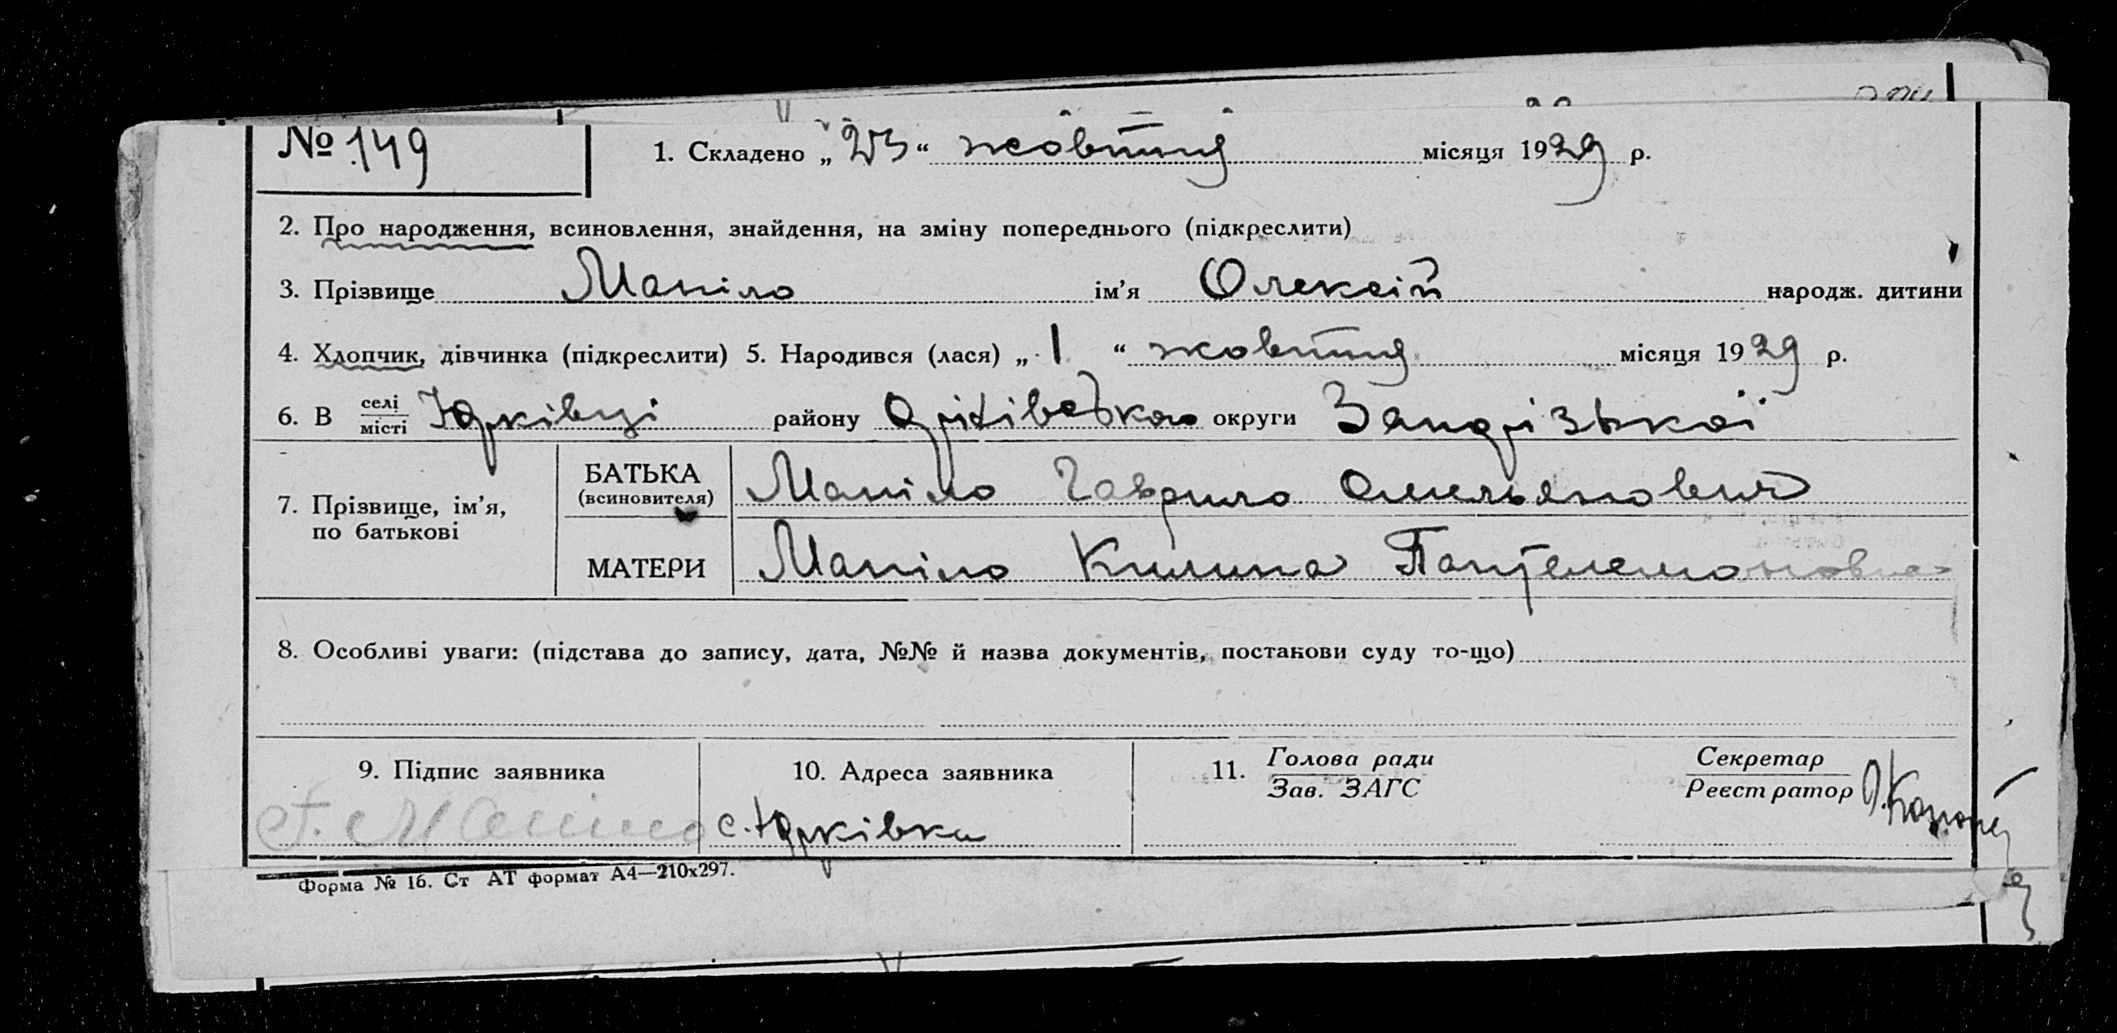 № 149
1. Складено „ 23 “ жовтня місяця 1929 р.
2. Про народження, всиновлення, знайдення, на зміну попереднього (підкреслити)
3. Прізвище Маніло ім’я Олексій народж. дитини
4. Хлопчик, дівчинка (підкреслити) 5. Народився (лася) „ 1 “ жовтня місяця 1929 р.
6. В селі
місті Юрківці району Оріхівсько округи Запорізької
7. Прізвище, ім’я,
по батькові
БАТЬКА
(всиновителя)
Маніло Гаврило Омельянович
МАТЕРИ Маніло Килина Пантелемоновна
8. Особливі уваги: (підстава до запису, дата, №№ й назва документів, постанови суду то-що)
9. Підпис заявника
Г. Маніло
10. Адреса заявника
с. Юрківка
11. Голова ради
Зав. ЗАГС
Секретар
Реєстратор
Форма № 16. Ст АТ формат А4—210х297.